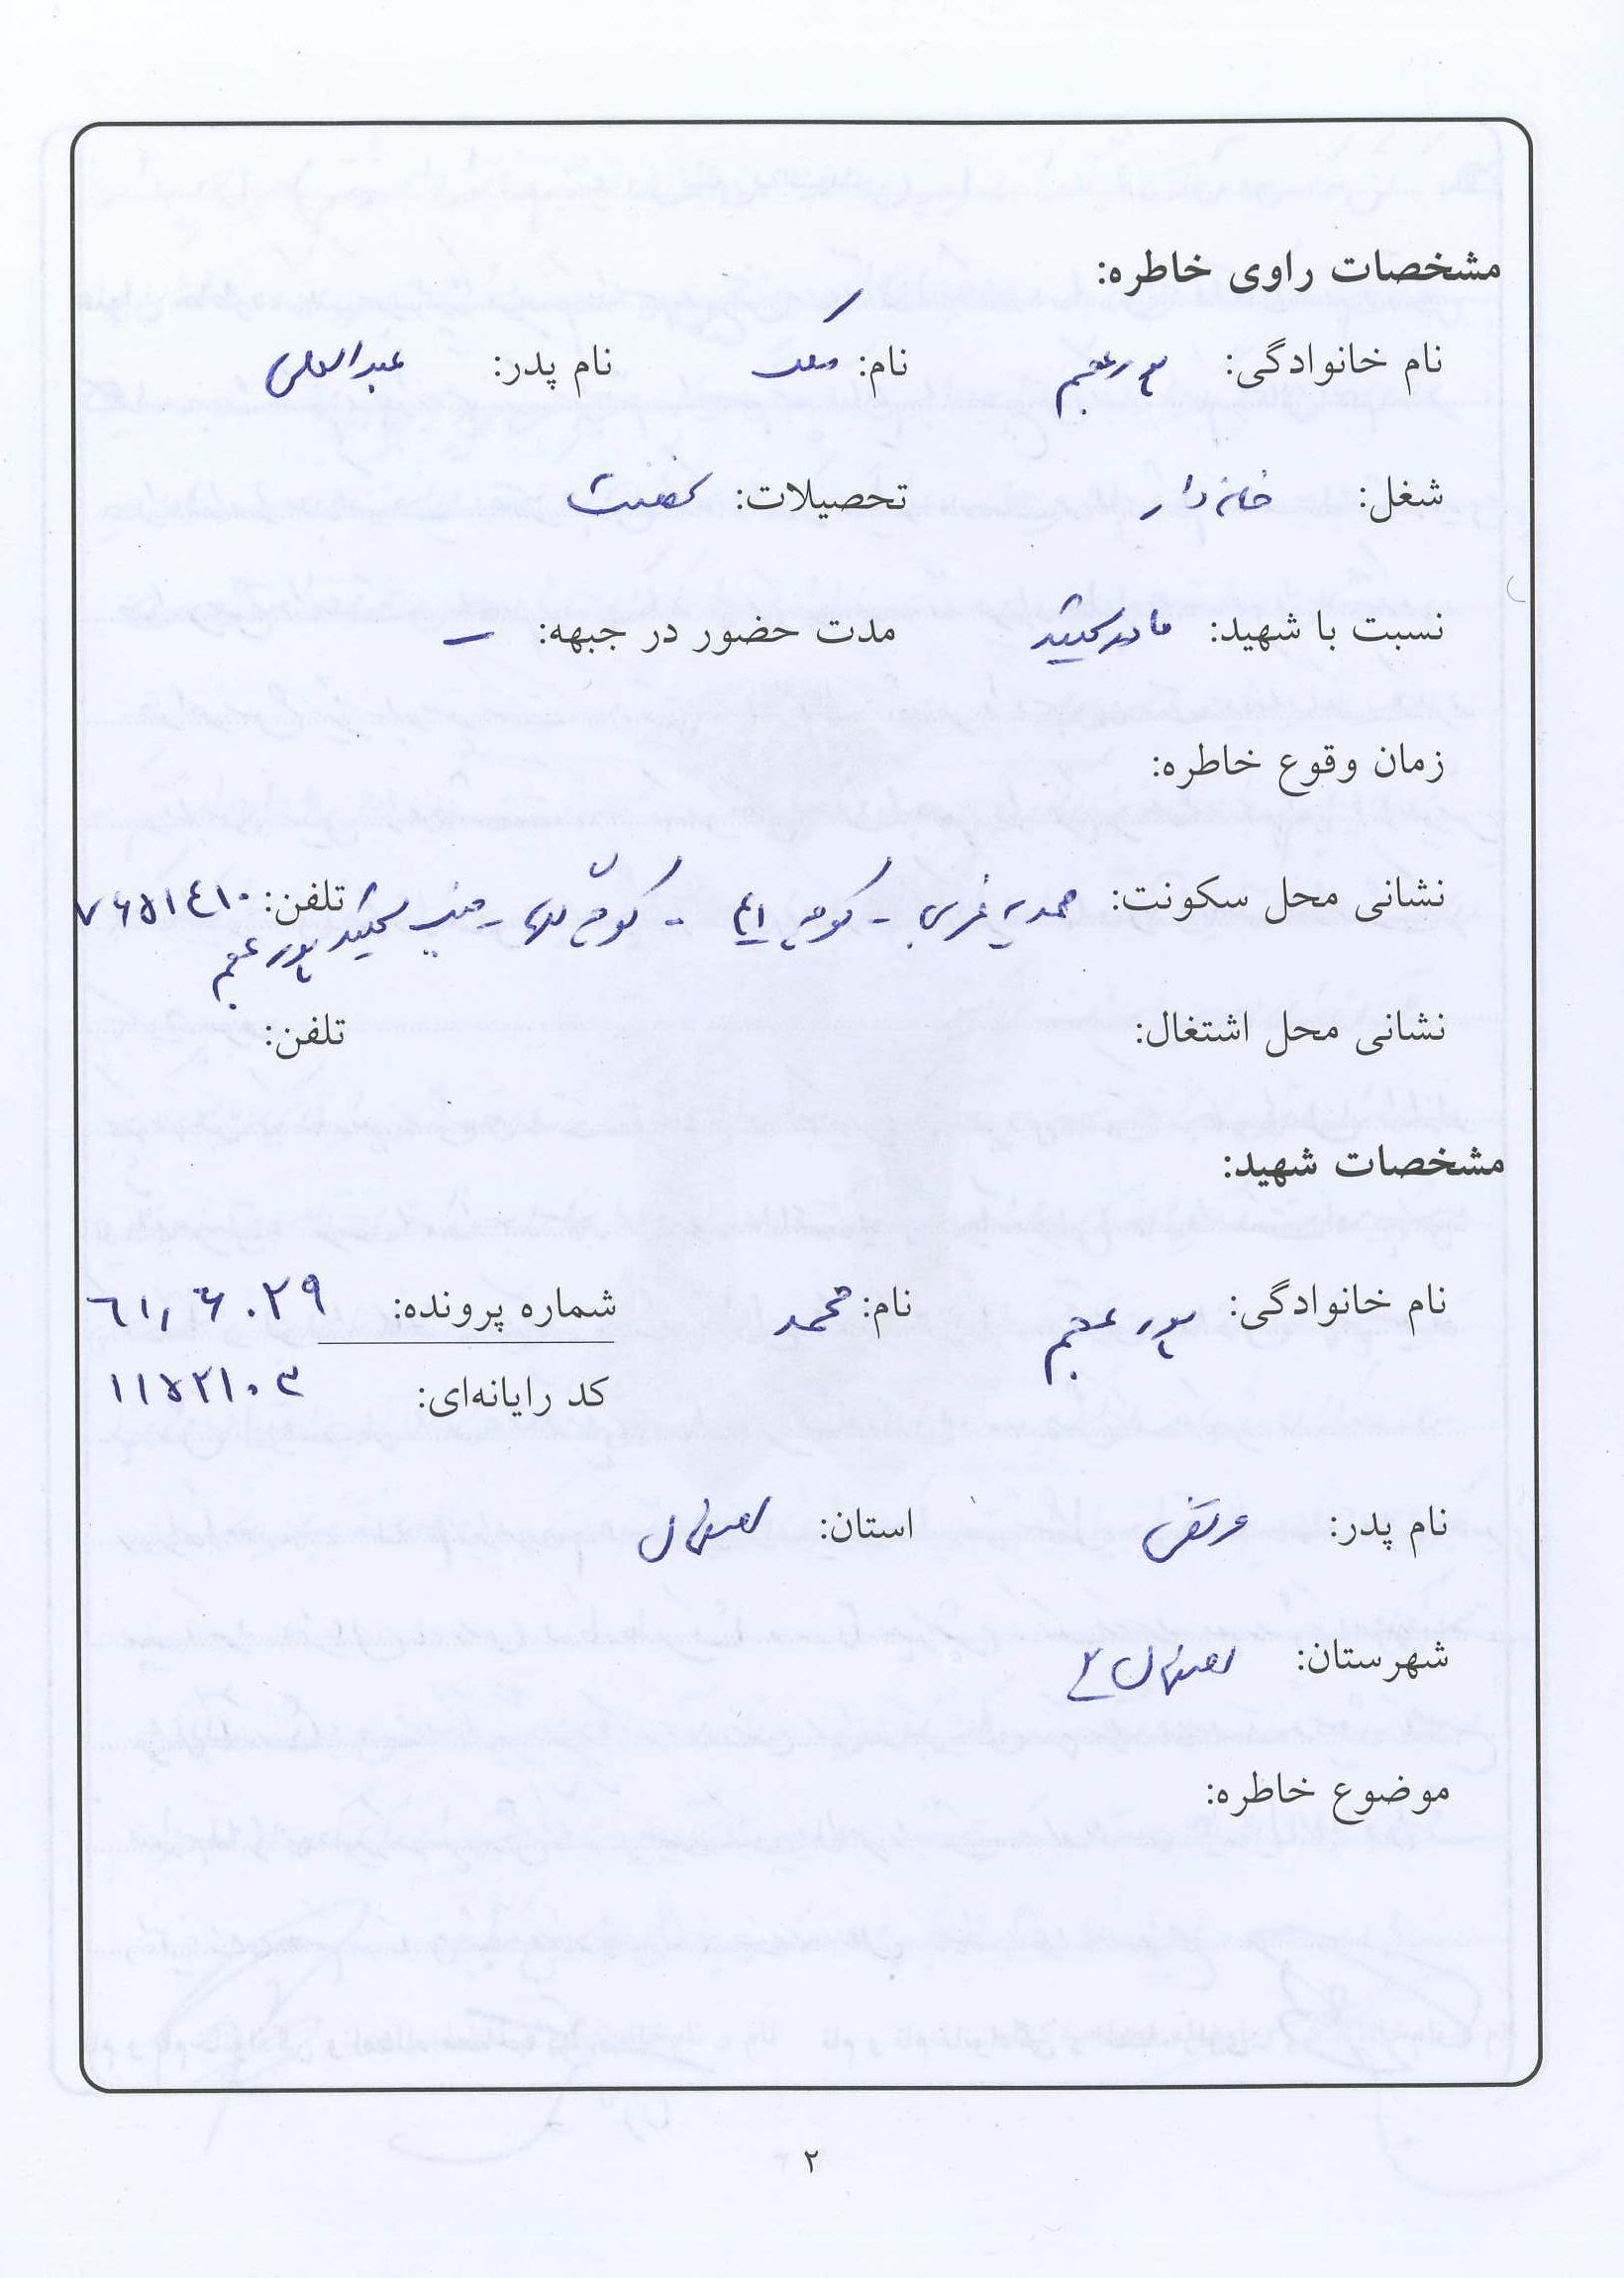 مشخصات راوی خاطره:
نام خانوادگی: پورعجم نام: نام پدر: عبدالعلی
شغل: خانه دار تحصیلات: نهضت
نسبت با شهید: مادر شهید مدت حضور در جبهه: –
زمان وقوع خاطره:
نشانی محل سکونت: صمدیه غربی - کوچه - کوچه - جنب شهید پورعجم تلفن: ۷۶۵۱۴۱۰
نشانی محل اشتغال: تلفن:
مشخصات شهید:
نام خانوادگی: پورعجم نام: محمد شماره پرونده: ۶۱,۶۰۲۹
کد رایانه‌ای: ۱۱۵۲۱۰۳
نام پدر: مرتضی استان: اصفهان
شهرستان: اصفهان ۲
موضوع خاطره:
۲